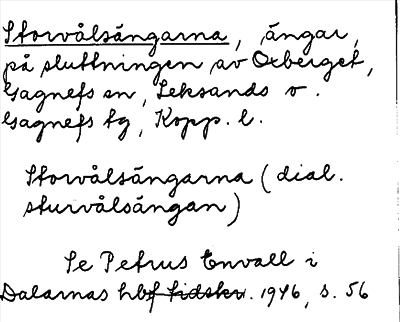 Storvålsängarna, ängar,
på sluttningen av Oxberget,
Gagnefs sn, Leksands o.
Gagnefs tg, Kopp. l.
Storvålsängarna (dial.
sturvålsängan)
Se Petrus Envall i
Dalarnas hbf tidskr. 1946, s. 56